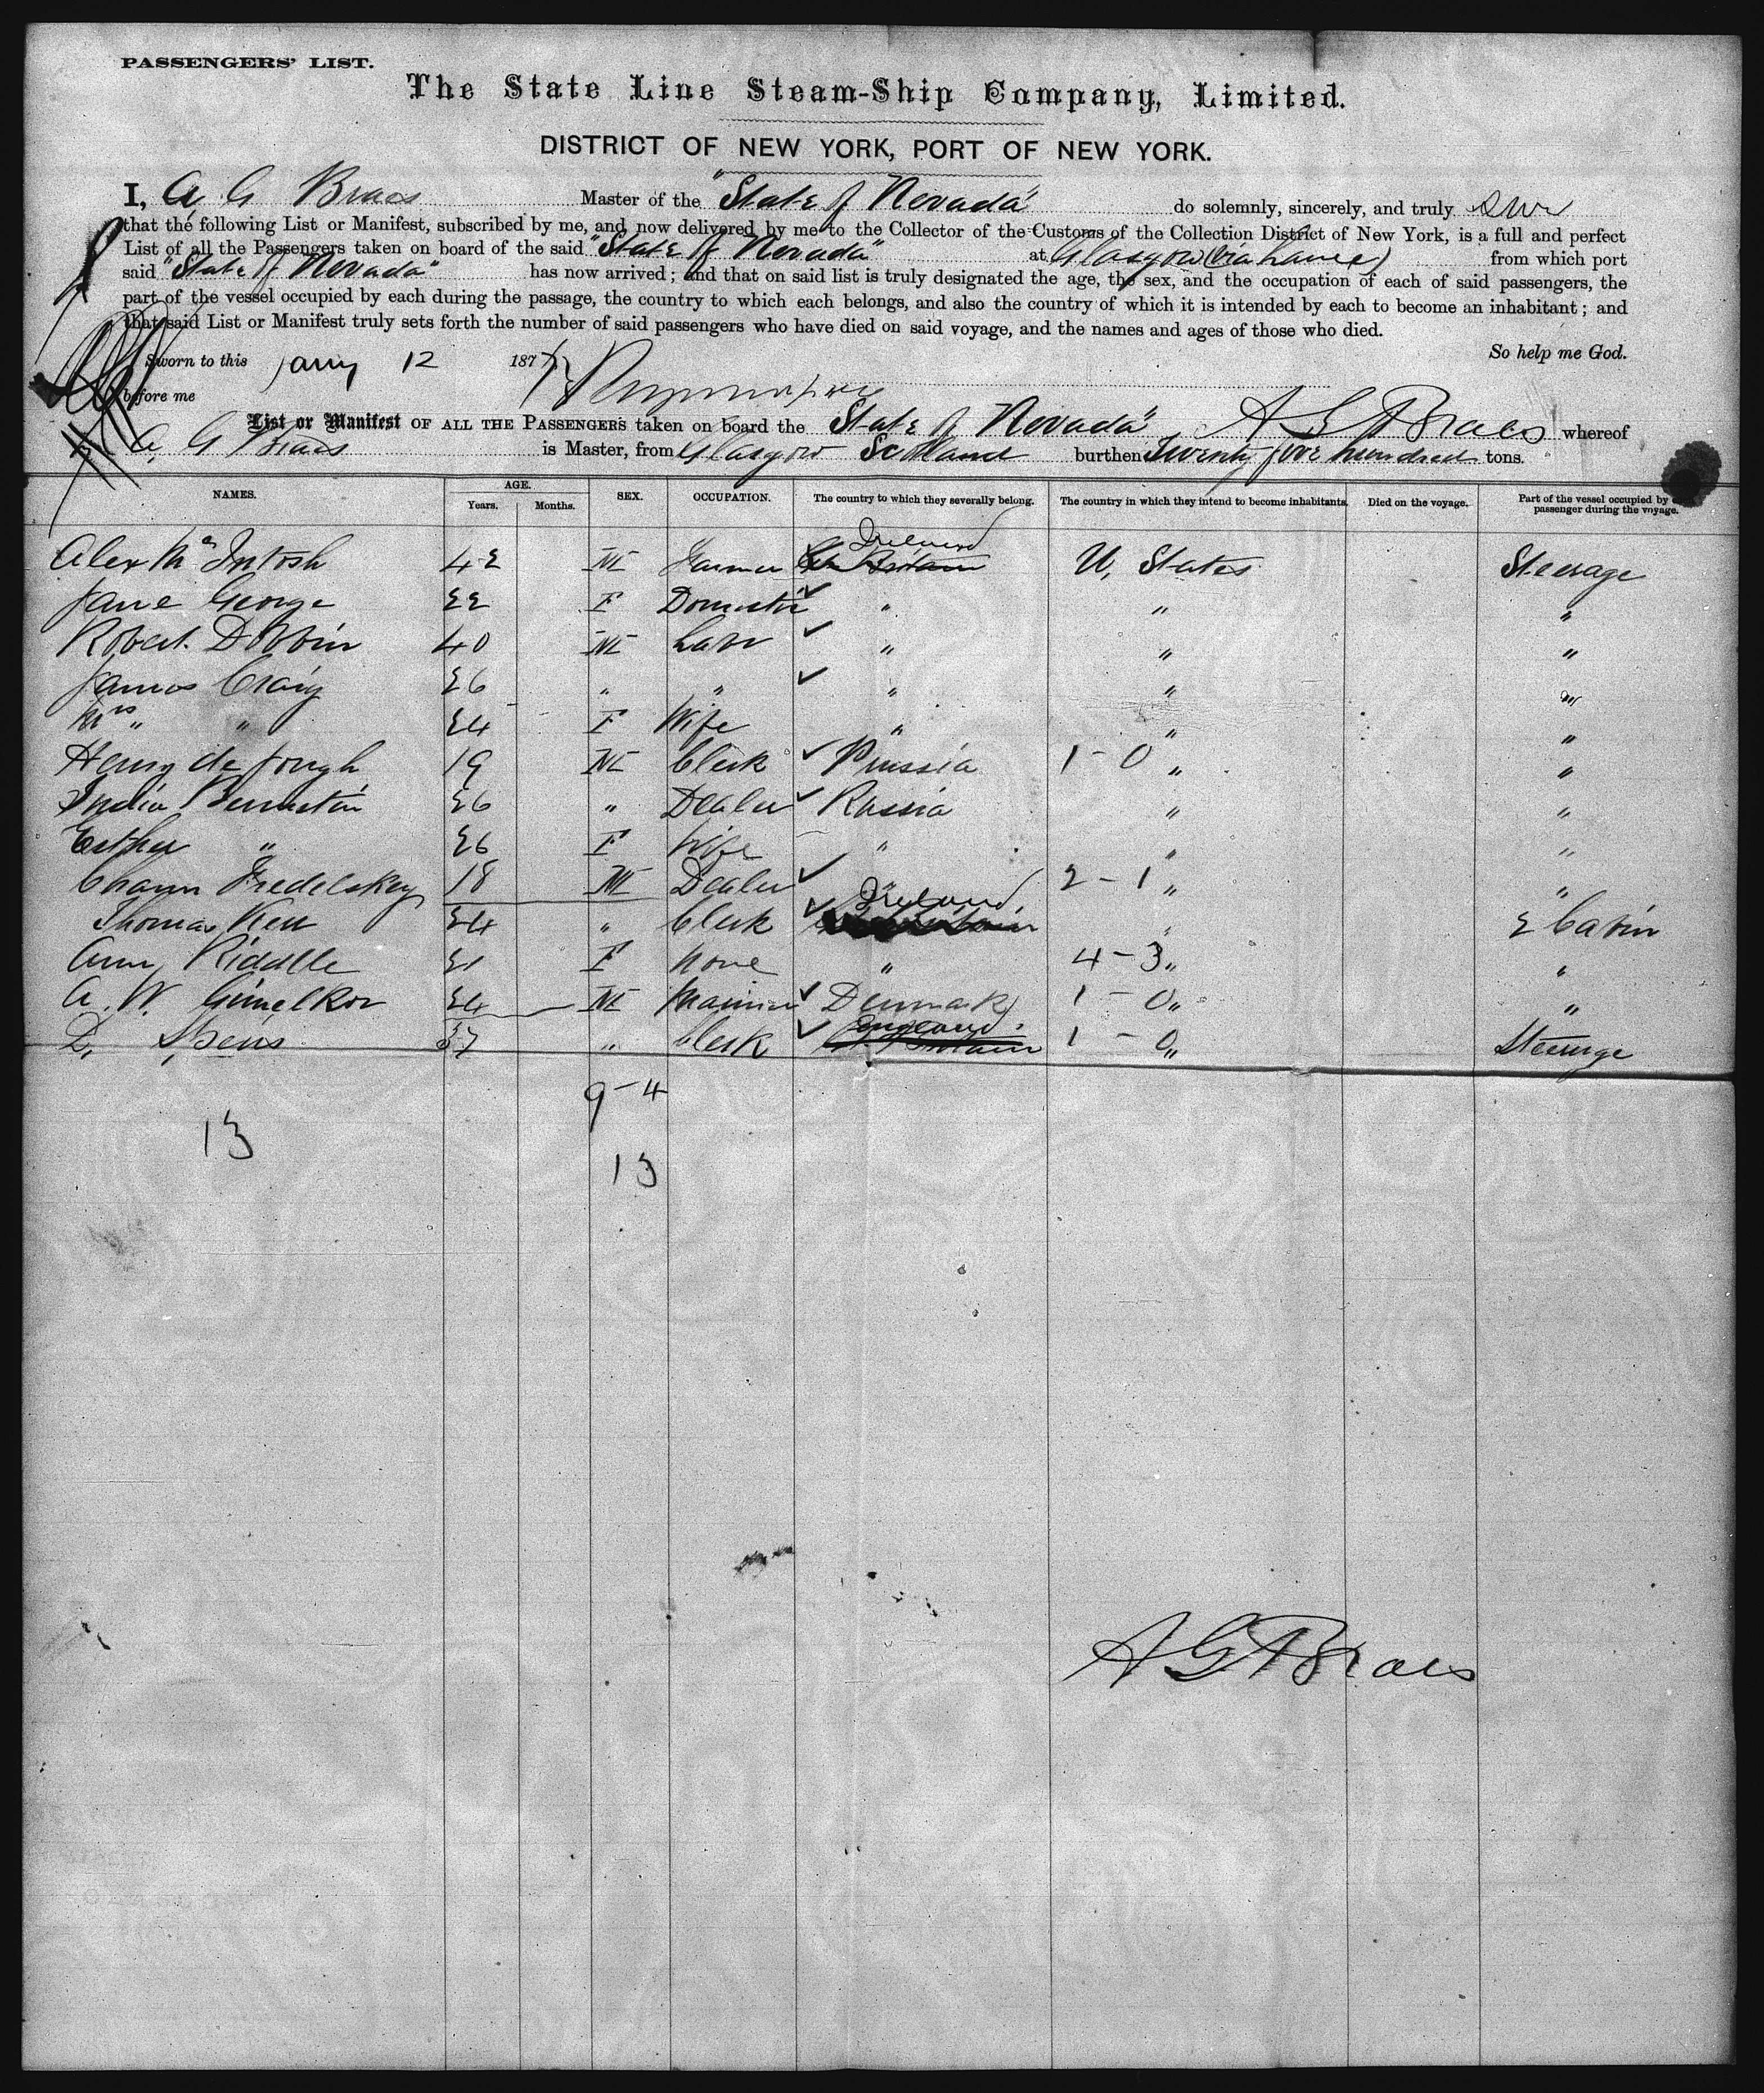 PASSENGERS' LIST.
The State Line Steam-Ship Company, Limited.
DISTRICT OF NEW YORK, PORT OF NEW YORK.
I, A G Braes Master of the "State of Nevada" do solemnly, sincerely, and truly swr
that the following List or Manifest, subscribed by me, and now delivered by me to the Collector of the Customs of the Collection District of New York, is a full and perfect
List of all the Passengers taken on board of the said "State of Nevada" at Glasgow (via Larne) from which port
said "State of Nevada" has now arrived; and that on said list is truly designated the age, the sex, and the occupation of each of said passengers, the
part of the vessel occupied by each during the passage, the country to which each belongs, and also the country of which it is intended by each to become an inhabitant; and
that said List or Manifest truly sets forth the number of said passengers who have died on said voyage, and the names and ages of those who died.
So help me God.
Sworn to this Jany 12 187
before me
List or Manifest OF ALL THE PASSENGERS taken on board the State of Nevada" A G Braes whereof
A. G Braes is Master, from Glasgow Scotland burthen Twenty five hundred tons.
NAMES. AGE. Years. Months. SEX. OCCUPATION. The country to which they severally belong. The country in which they intend to become inhabitants. Died on the voyage. Part of the vessel occupied by passenger during the voyage.
Ireland
Alex Mc Intosh 42 M Farmer Gt Britain U, States Steerage
Jane George 22 F Domestic " " "
Robert Dobbin 40 M Labr " " "
James Craig 26 " " " " "
Mrs " " 24 F Wife " " "
Henry de Jongh 19 M Clerk Prussia 1 - 0 " "
Bernstein 26 " Dealer Russia " "
Esther " 26 F Wife " " "
18 M Dealer " 2 - 1 " "
Ireland
Thomas Kerr 24 " Clerk " 2 Cabin
Ann Riddle 21 F None " 4 - 3 " "
A. W. 24 M Denmark 1 - 0 " "
England
D. Spens 37 " Clerk Gt Britain 1 - 0 " Steerage
9 - 4
13
13
A G Braes